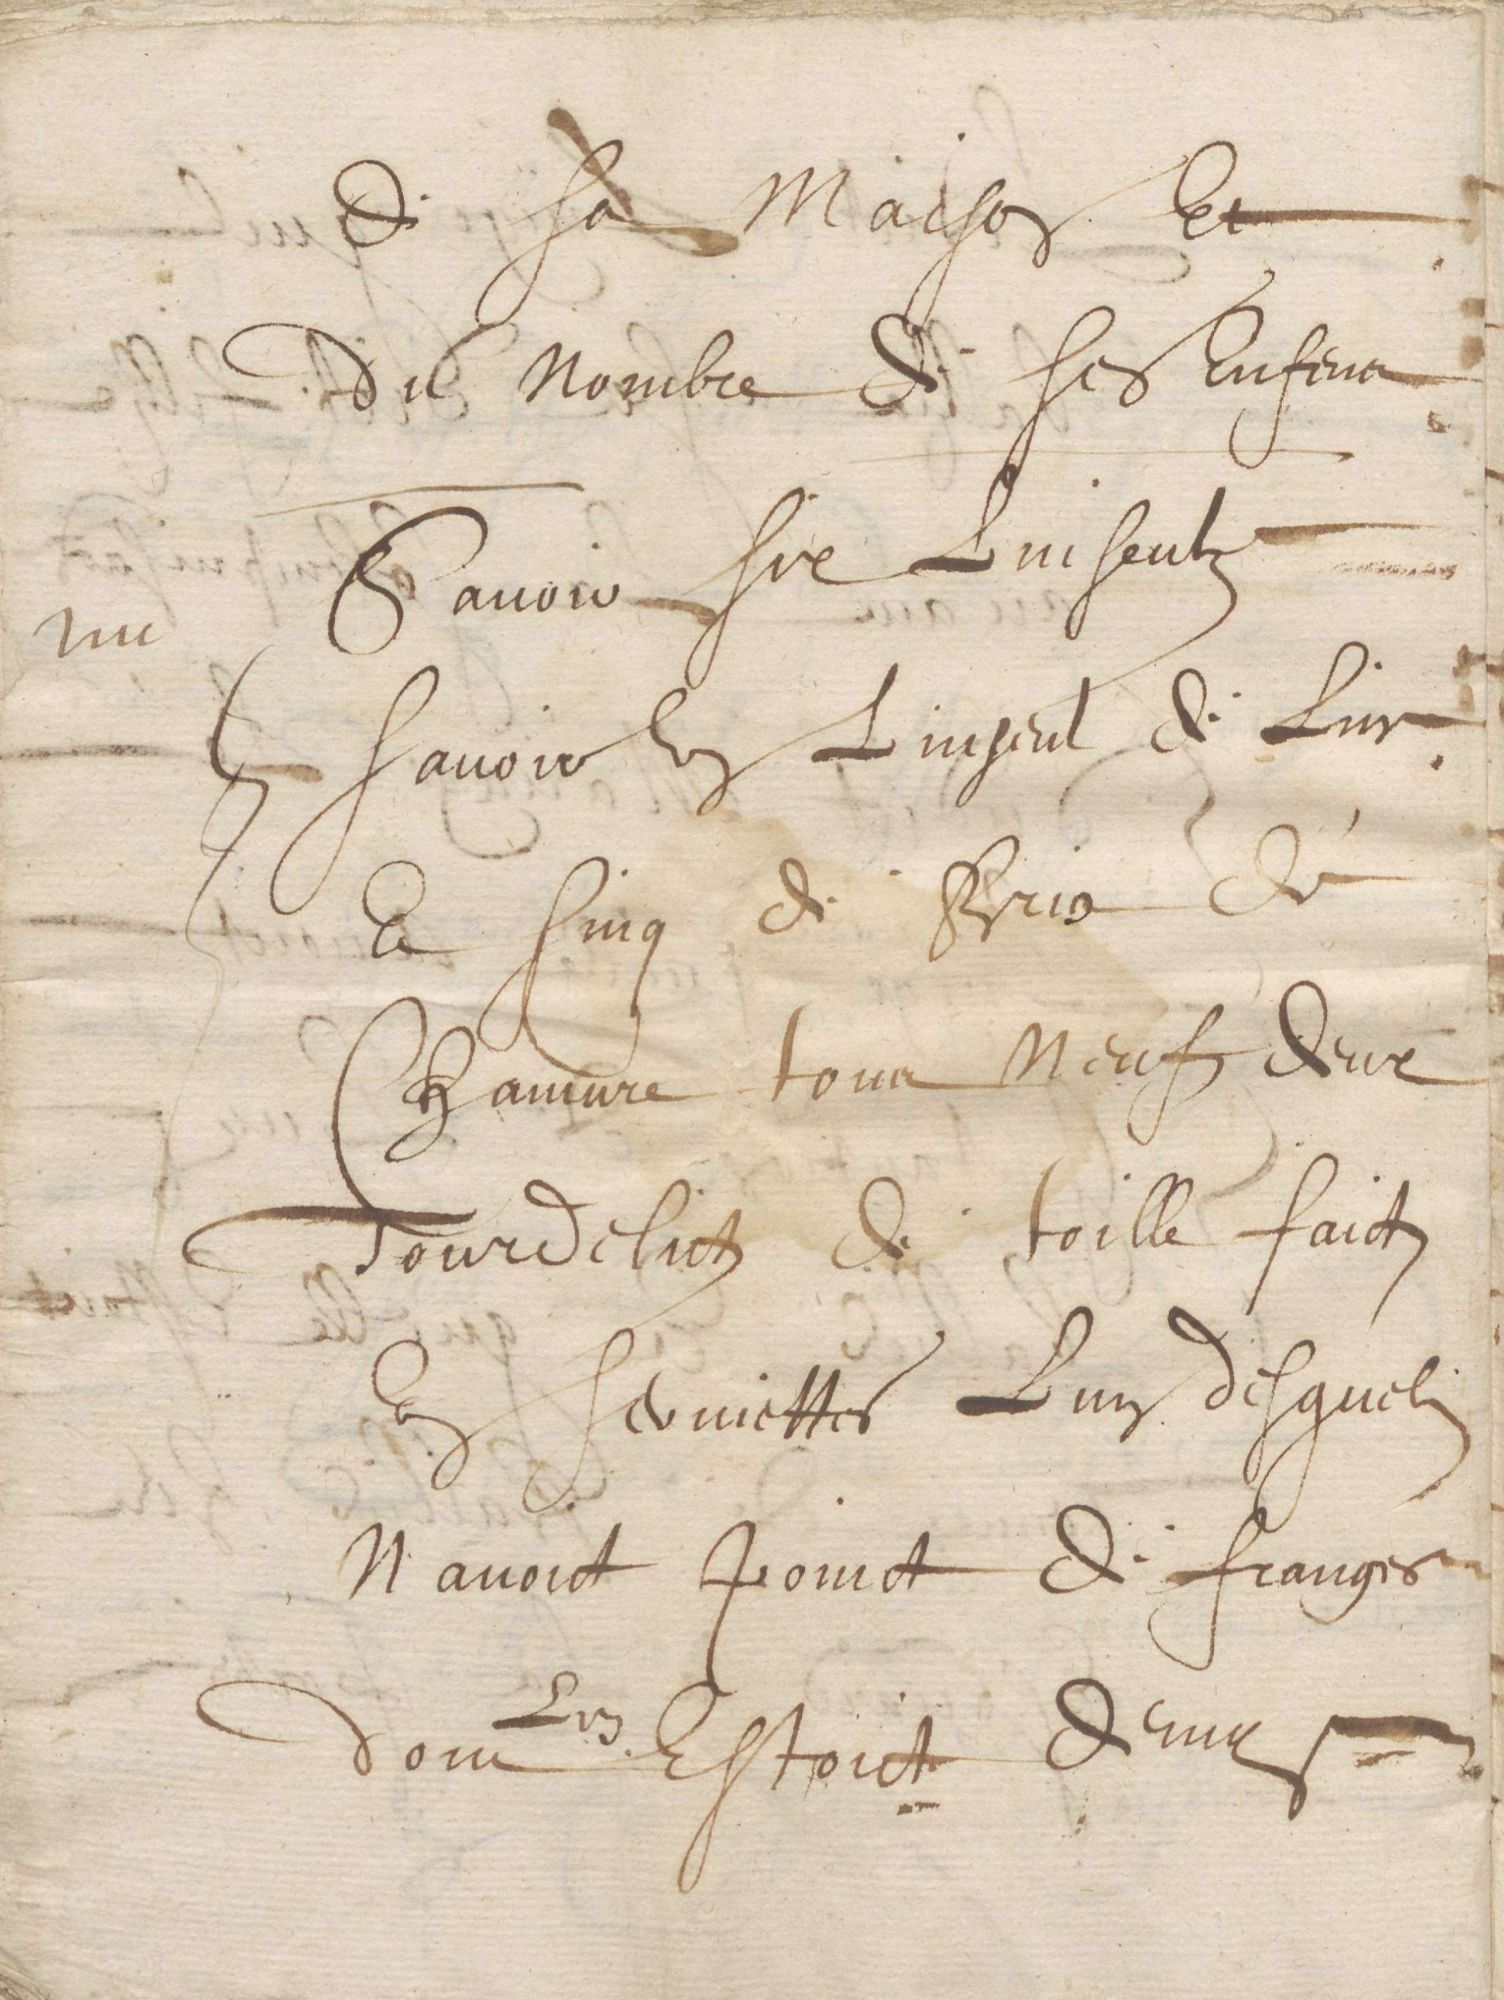 de sa Maison Et
du Nombre de ses Enfens
Sauoir six Linseulz
nu
sauoir un Linseul de Lin
Et sinq de Brin de
Chanvre tous Neufz deux
Tourdelictz de toille faictz
En seruiettes Lun desquelz
Navoict poinct de franges
dont Lun Estoict demy